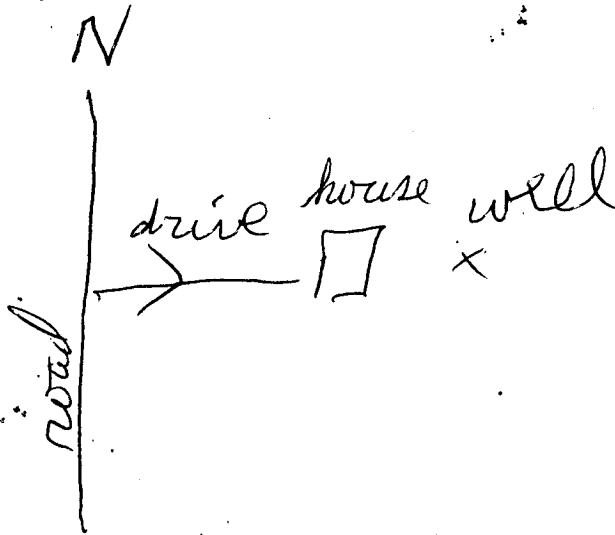 N
drive house well
x
road